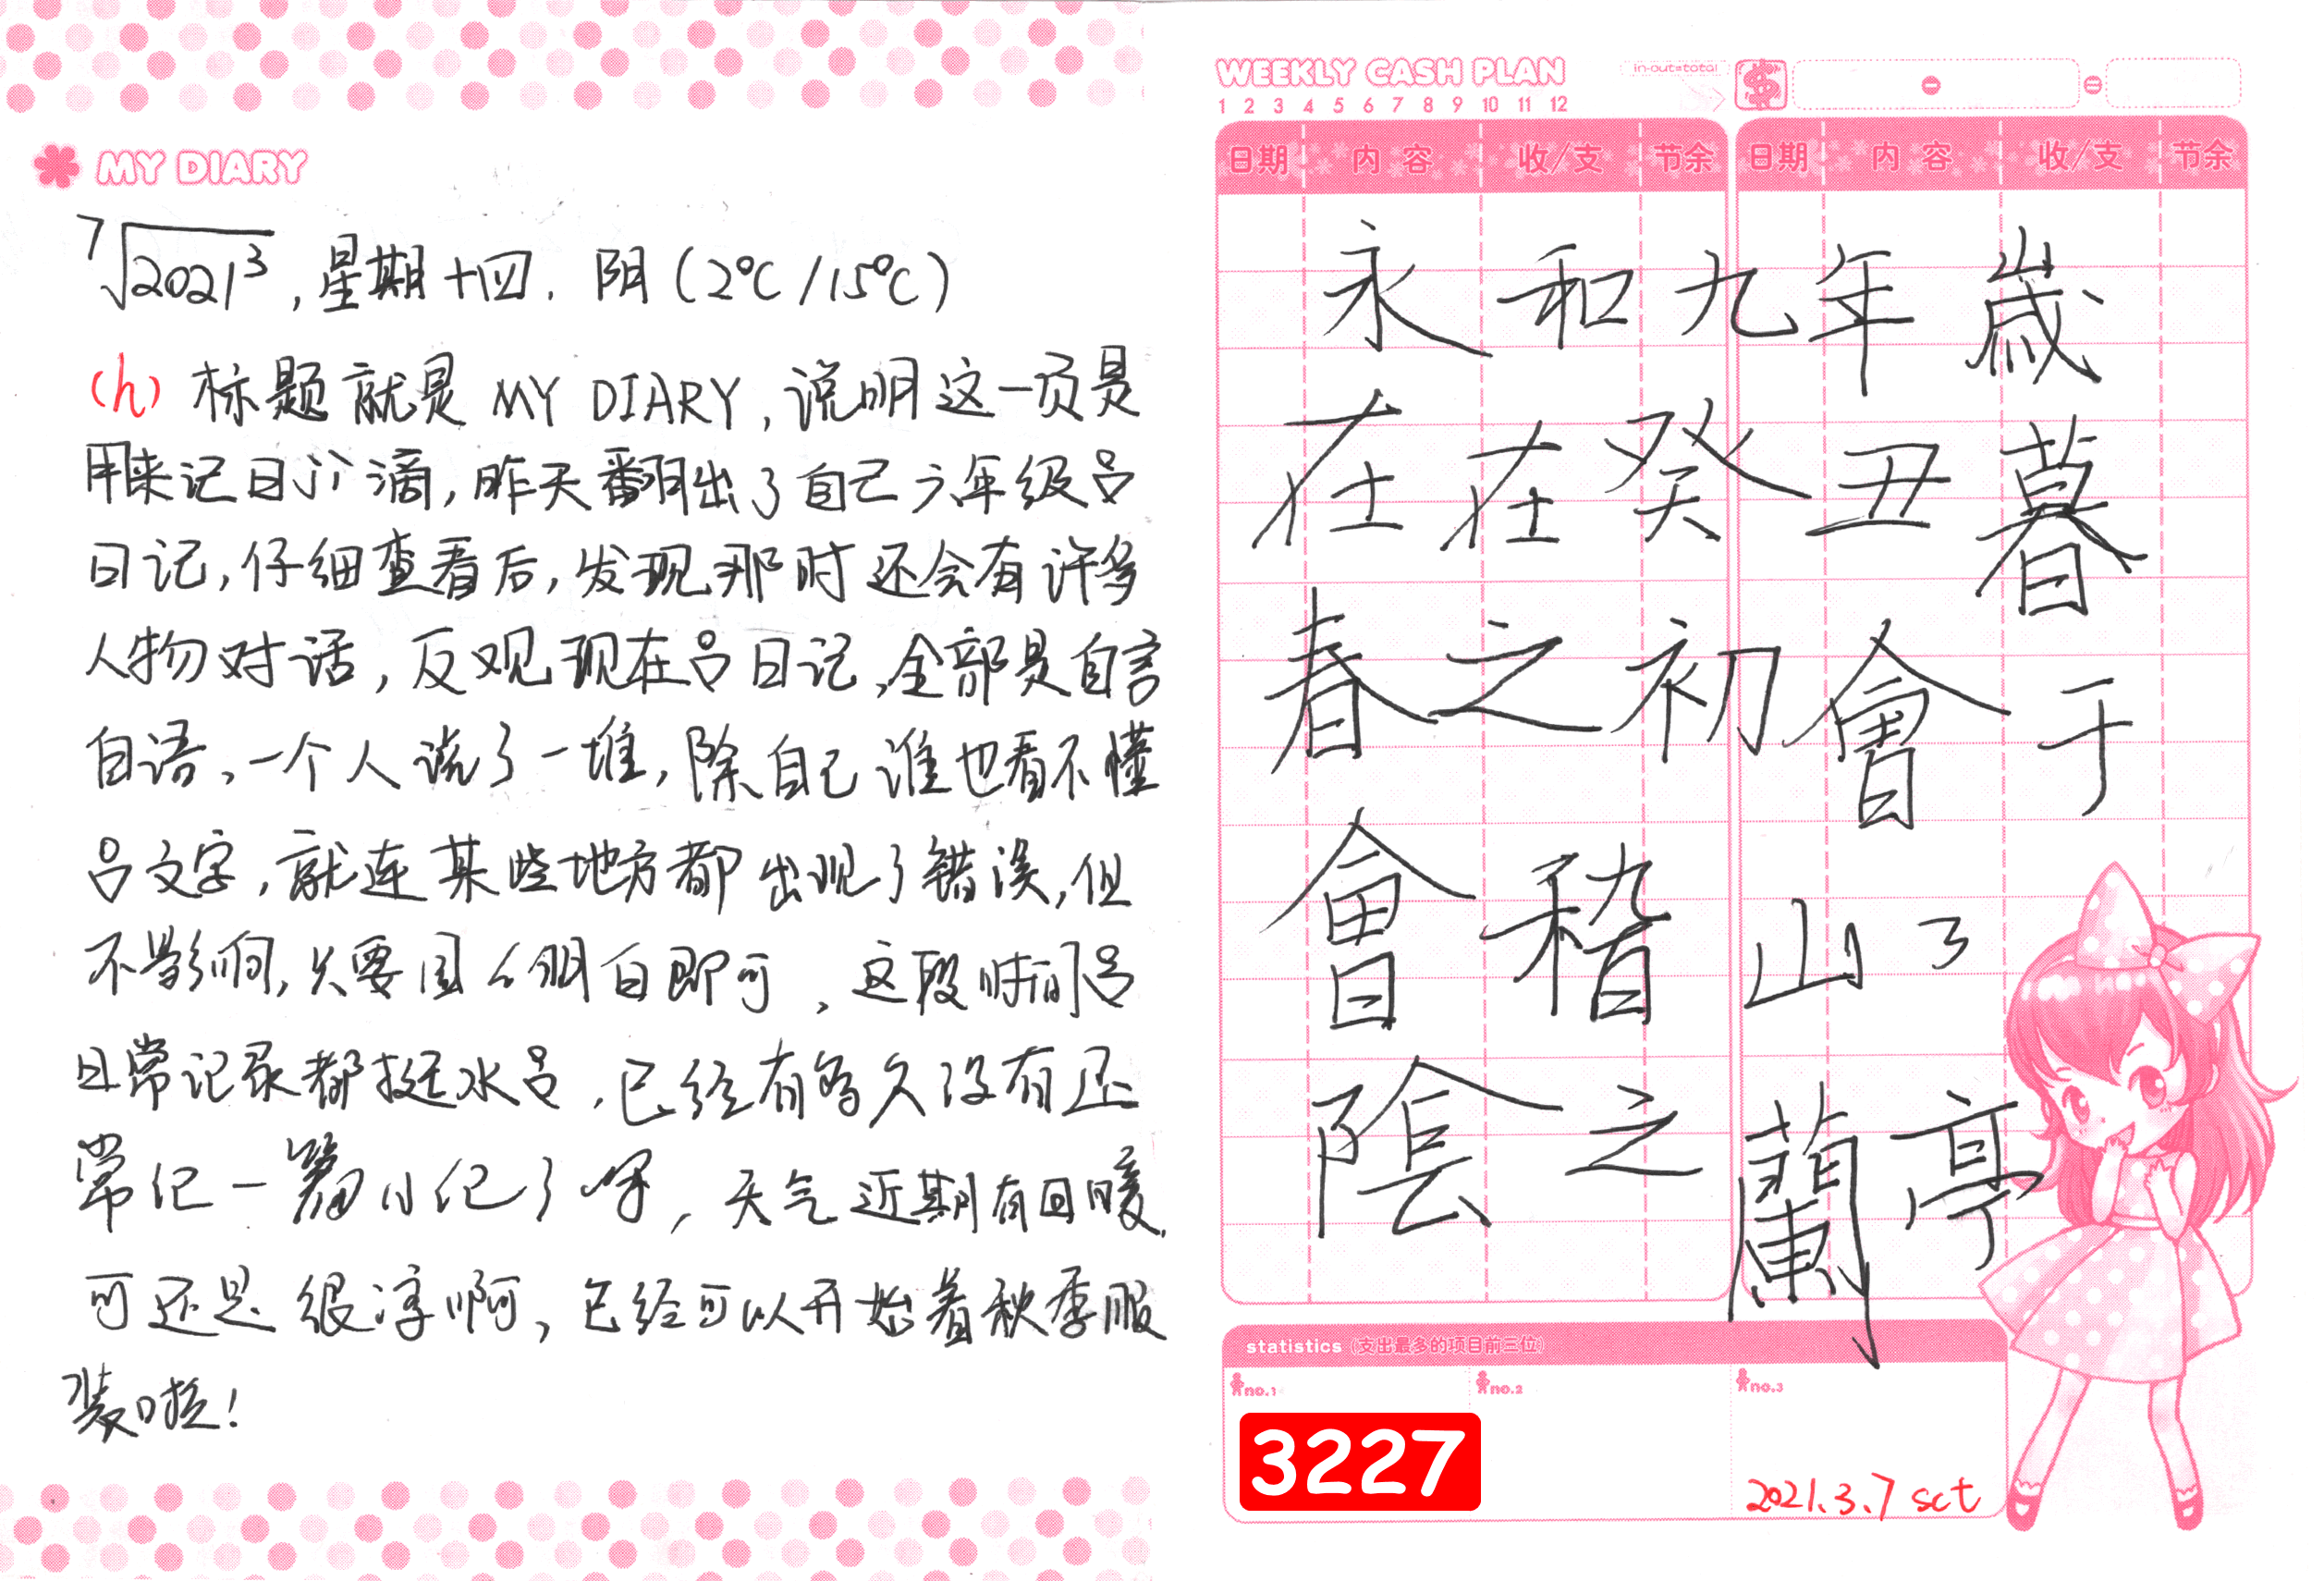 MY DIARY
⁷√2021³, 星期十四. 阴 (2℃/15℃)
(h) 标题就是 MY DIARY, 说明这一页是
用来记日 滴, 昨天翻出了自己六年级吕
日记, 仔细查看后, 发现那时还会有许多
人物对话, 反观现在吕日记, 全部是自言
自语, 一个人说了一堆, 除自己谁也看不懂
吕文字, 就连某些地方都出现了错误, 但
不影响, 只要 明白即可, 这段时间吕
日常记录都挺水吕, 已经有多久没有正
常记一篇小记了呀, 天气近期有回暖,
可还是很凉啊, 已经可以开始着秋季服
装啦!
WEEKLY CASH PLAN
in-out=total
$
1 2 3 4 5 6 7 8 9 10 11 12
日期 内容 收/支 节余 日期 内容 收/支 节余
永和九年歲
在在癸丑暮
春之初會于
會稽山了
陰之蘭亭
statistics (支出最多的项目前三位)
no.1 no.2 no.3
3227
2021.3.7 sct